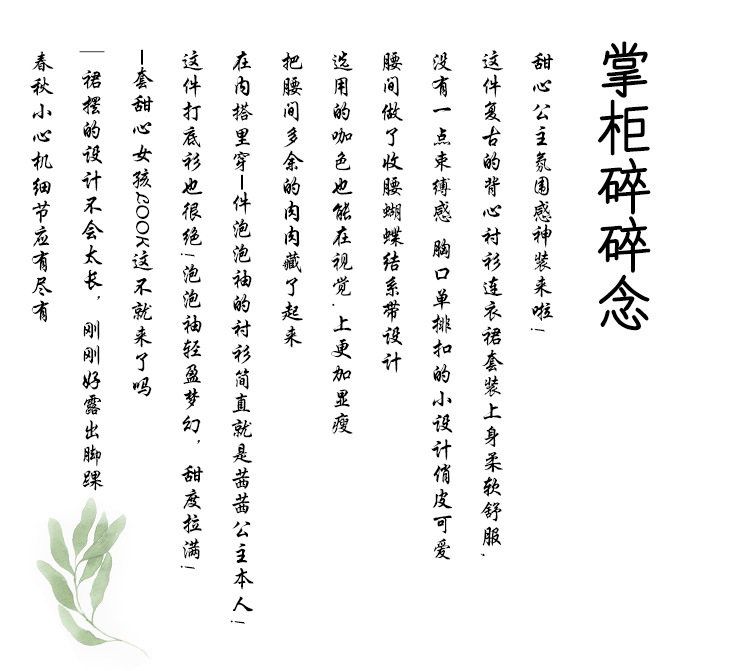 掌柜碎碎念
甜心公主氛围感神装来啦!
这件复古的背心衬衫连衣裙套装上身柔软舒服,
没有一点束缚感 胸口单排扣的小设计俏皮可爱
腰间做了收腰蝴蝶结系带设计
选用的咖色也能在视觉,上更加显瘦
把腰间多余的肉肉藏了起来
在内搭里穿一件泡泡袖的衬衫简直就是茜茜公主本人!
这件打底衫也很绝!泡泡袖轻盈梦幻，甜度拉满!
一套甜心女孩LOOK这不就来了吗
裙摆的设计不会太长，刚刚好露出脚踝
春秋小心机细节应有尽有